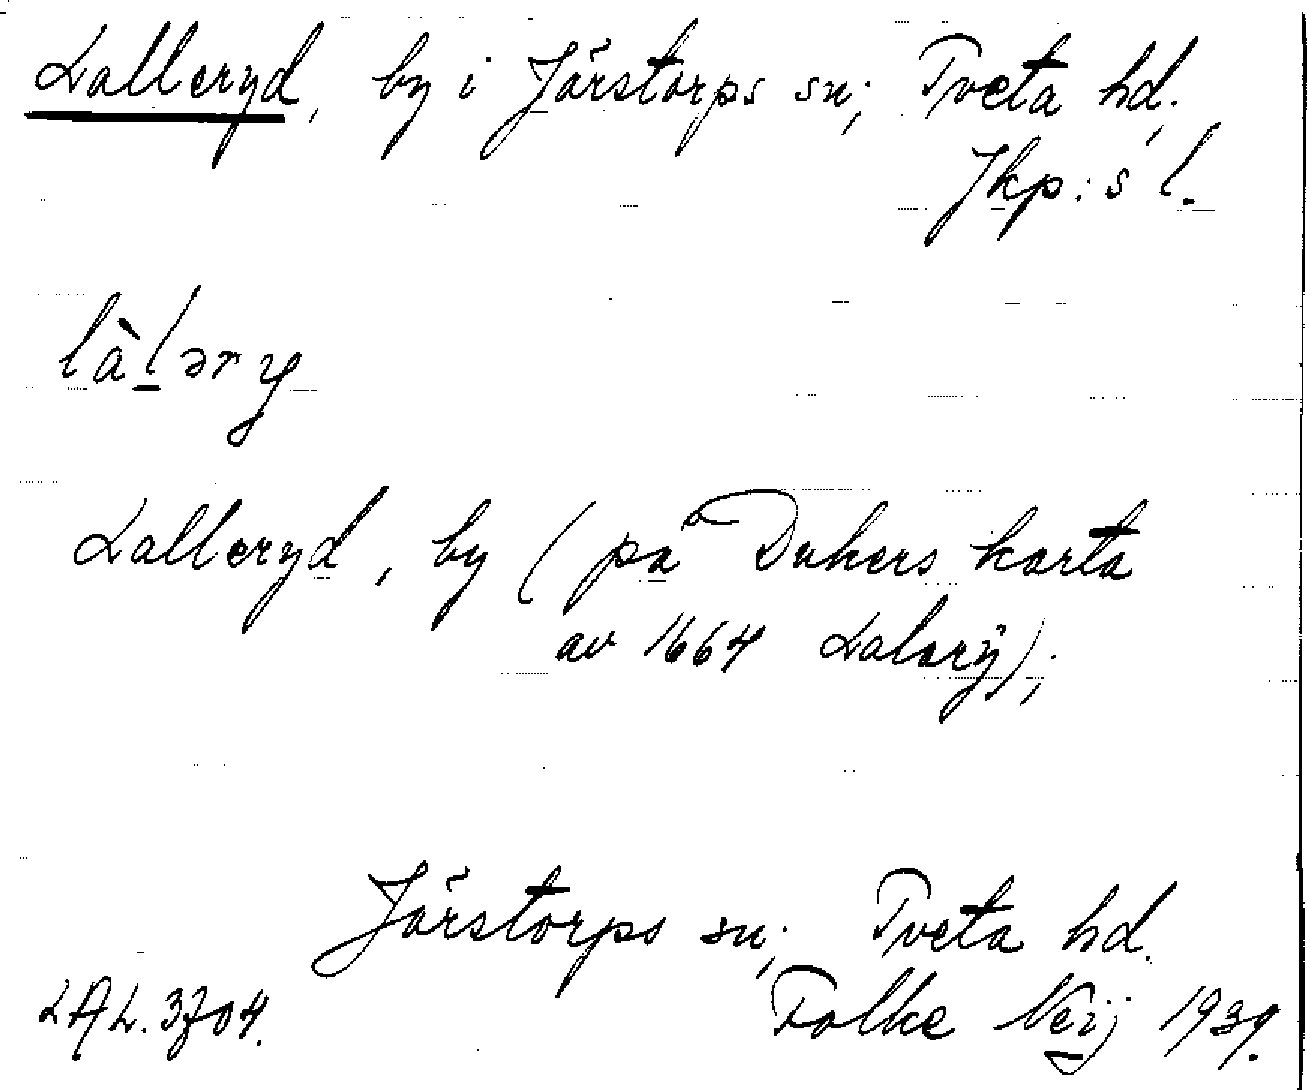 Lalleryd, by i Järstorps sn; Tveta hd,
Jkp:s l.
là̱lәry
Lalleryd, by (på Dukers karta
av 1664 Lalarÿ);
Järstorps sn; Tveta hd.
LAL. 3704.
Folke Neij 1939.